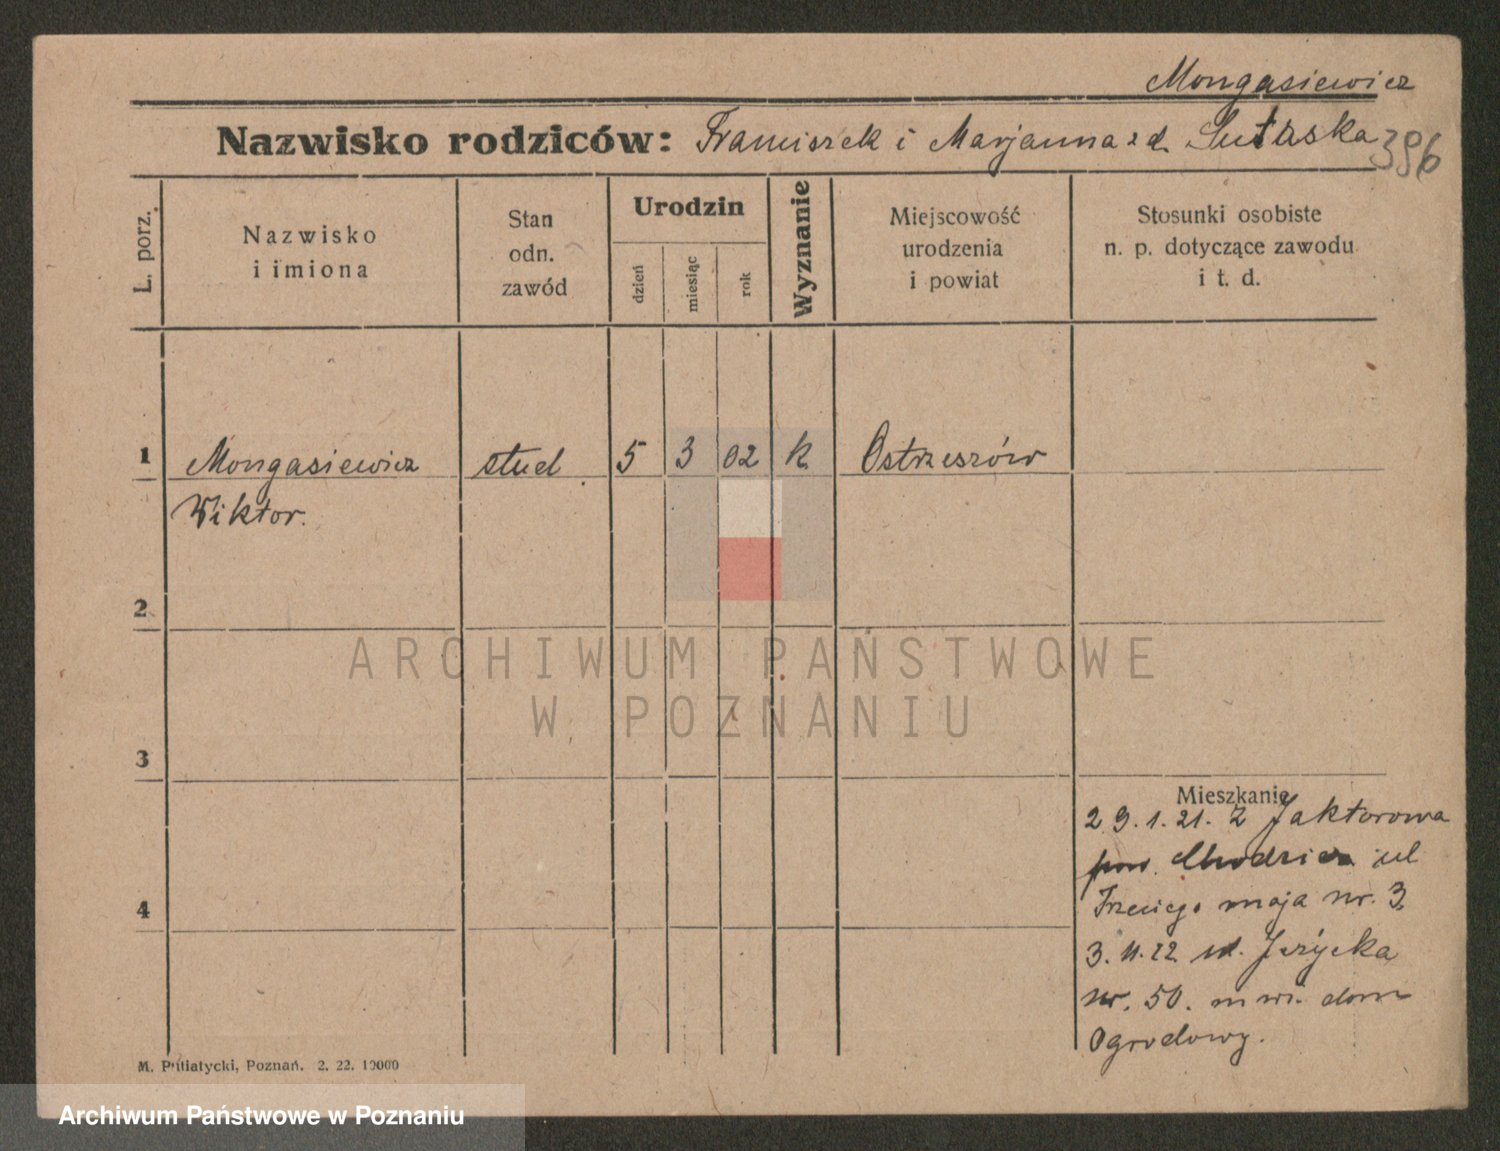 Mongasiewicz
Nazwisko rodziców: Franciszek i Marjanna z d.
396
L. porz.
Nazwisko
i imiona
Stan
odn.
zawód
Urodzin
dzień
miesiąc
rok
Wyznanie
Miejscowość
urodzenia
i powiat
Stosunki osobiste
n. p. dotyczące zawodu
i t. d.
1 Mongasiewicz stud 5 3 02 k Ostrzeszów
Wiktor.
2
ARCHIWUM PAŃSTWOWE
W POZNANIU
3
Mieszkanie
29.1.21. z Jaktorowa
pow. Chodzież ul
Trzeciego maja nr. 3
4
3.11.22 ul. Jeżycka
nr. 50. m dom
Ogrodowy.
M. Putiatycki, Poznań. 2. 22. 10000
Archiwum Państwowe w Poznaniu